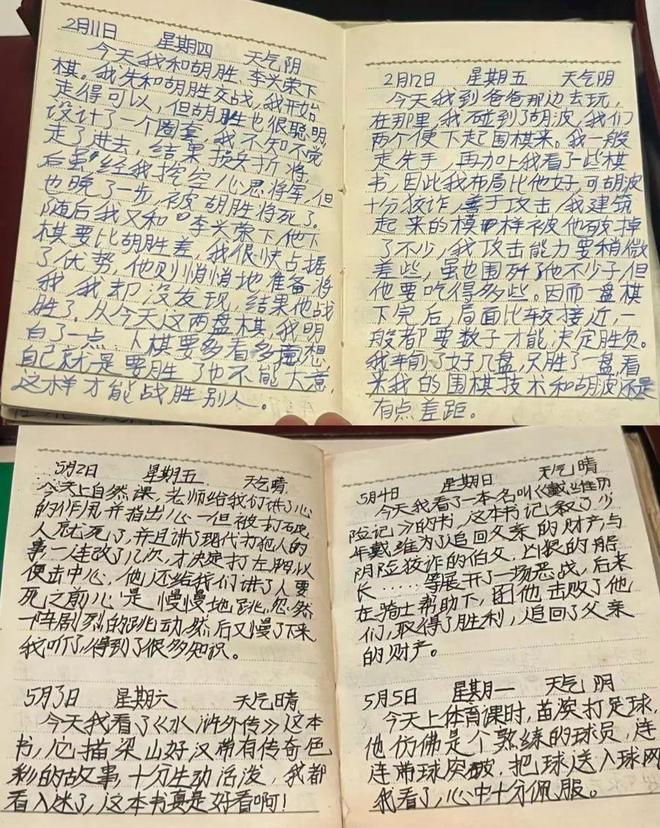 2月11日 星期四 天气阴
今天我和胡胜、李兴荣下
棋。我先和胡胜交战,我开始
走得可以,但胡胜也很聪明
设计了一个圈套,我不知不觉
走了进去,结果损失折将
后虽经我挖空心思将军,但
也晚了一步,被胡胜将死了。
随后我又和李兴荣下,他下
棋要比胡胜差,我很快占据
了优势,他则悄悄地准备将
我,我却没发现,结果他战
胜了,从今天这两盘棋,我明
白了一点:下棋要多看多想
自己就是要胜了也不能大意,
这样才能战胜别人。
2月12日 星期五 天气阴
今天我到爸爸那边去玩,
在那里,我碰到了胡波,我们
两个便下起围棋来。我一般
走先手,再加上我看了些棋
书,因此我布局比他好,可胡波
十分狡诈,善于攻击,我建筑
起来的模样被他破掉
了不少,我攻击能力要稍微
差些,虽也围歼了他不少子,但
他要吃得多些。因而一盘棋
下完后,局面比较接近,一
般都要数子才能决定胜负。
我牟了好几盘,只胜了一盘,看
来我的围棋技术和胡波还是
有点差距。
5月2日 星期五 天气晴
今天上自然课,老师给我们讲了心
的作用并指出心一但被打破
人就死了,并且讲了现代为犯人的
事,一连改了几次,才决定打左胸以
便击中心。他还给我们讲了人要
死之前心是慢慢地跳,忽然
一阵剧烈的跳动,然后又慢了下来
我听了,得到了很多知识。
5月3日 星期六 天气晴
今天我看了《水浒外传》这本
书,它描梁山好汉带有传奇色
彩的故事,十分生动活泼,我都
看入迷了,这本书真是好看啊!
5月4日 星期日 天气晴
今天我看了一本名叫《戴维历
险记》的书,这本书记叙了少
年戴维为了追回父亲的财产与
阴险狡诈的伯父、凶狠的船
长......等展开了一场恶战,后来
在骑士帮助下,他击败了他
们,取得了胜利,追回了父亲
的财产。
5月5日 星期一 天气阴
今天上体育课时,苗演打足球,
他仿佛是个熟练的球员,连
连带球突破,把球送入球网
我看了,心中十分佩服。